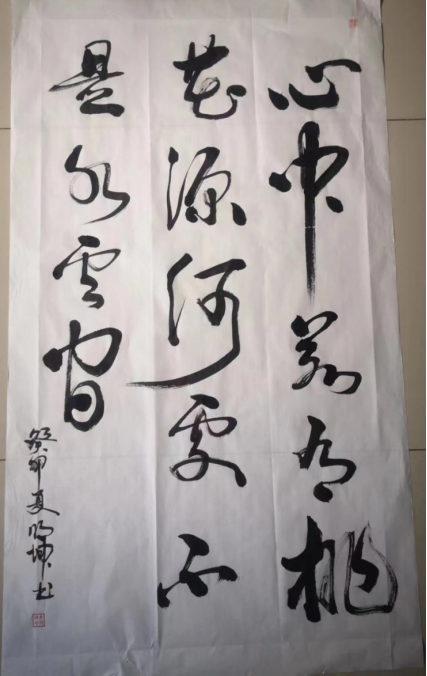 心中若有桃
花源何处不
是水云间
癸卯夏 坤书